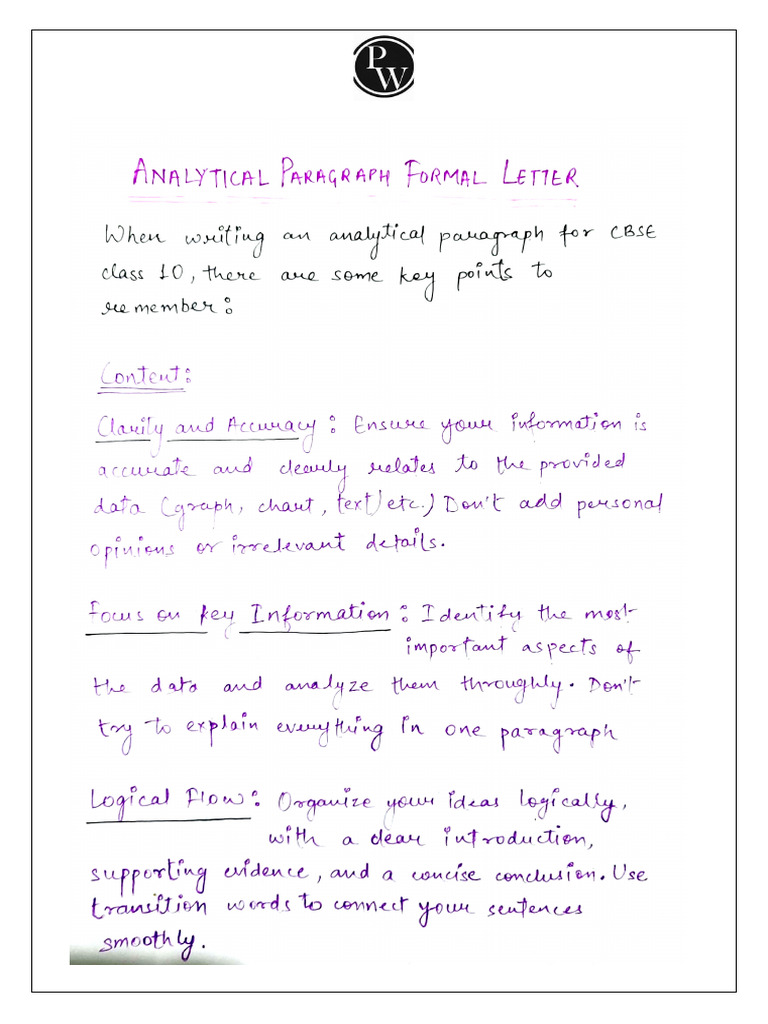 PW
ANALYTICAL PARAGRAPH FORMAL LETTER
When writing an analytical paragraph for CBSE
class 10, there are some key points to
remember:
Content:
Clarity and Accuracy: Ensure your information is
accurate and clearly relates to the provided
data (graph, chart, text/etc.) Don't add personal
opinions or irrelevant details.
Focus on key Information: Identify the most
important aspects of
the data and analyze them throughly. Don't
try to explain everything in one paragraph
Logical Flow: Organize your ideas logically,
with a clear introduction,
supporting evidence, and a concise conclusion. Use
transition words to connect your sentences
smoothly.